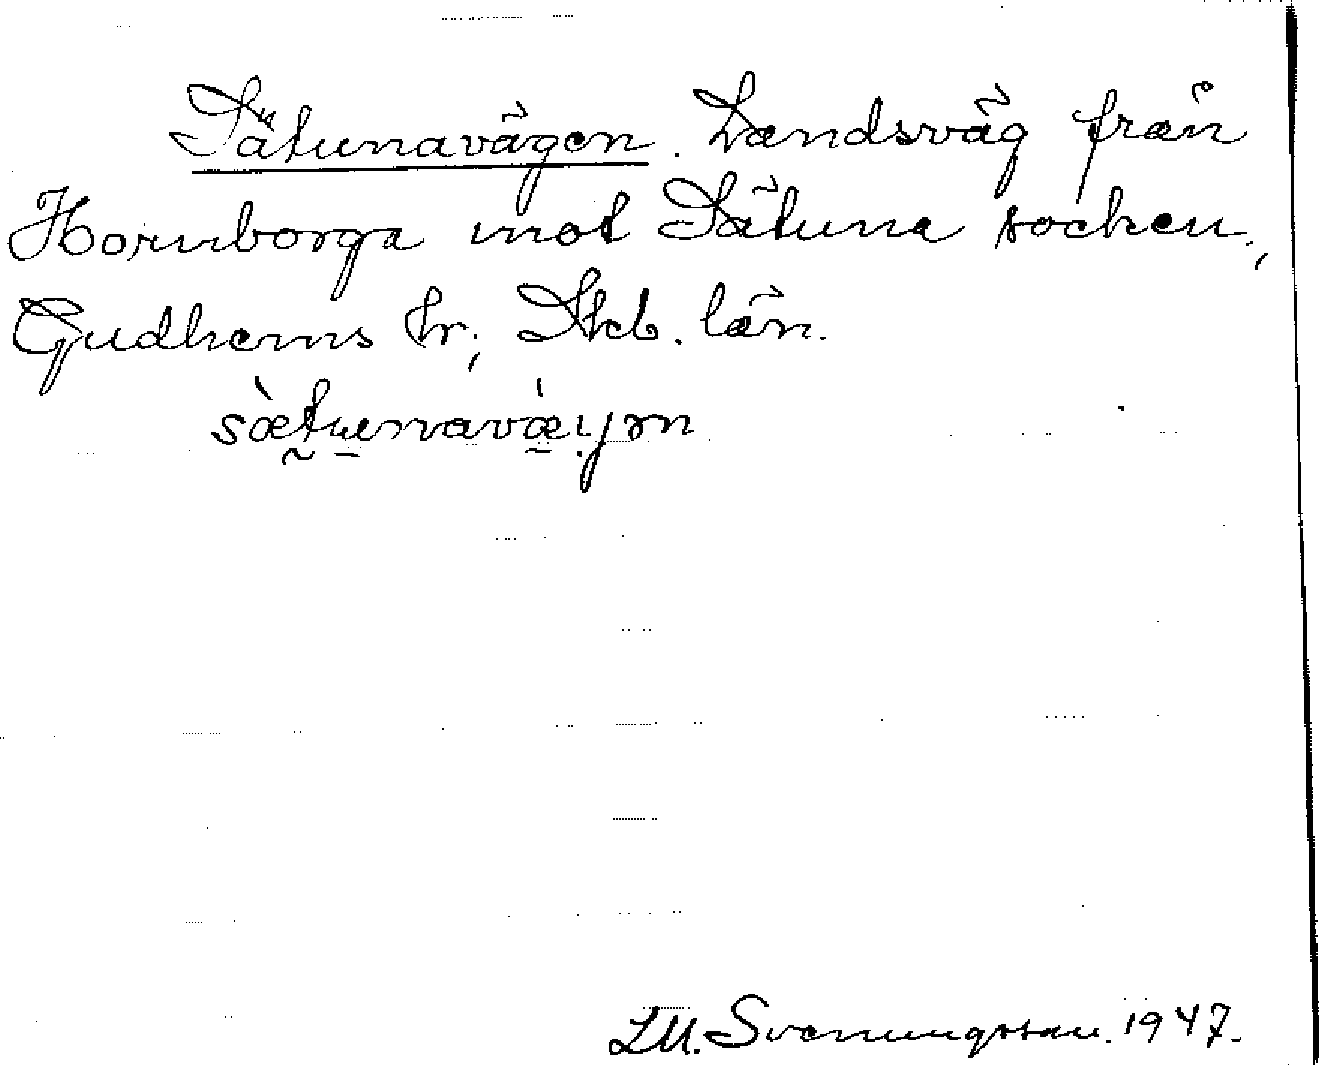 Sätunavägen. Landsväg från
Hornborga mot Sätuna socken,
Gudhems hr, Skb. län.
L.M. Svenungsson. 1947.